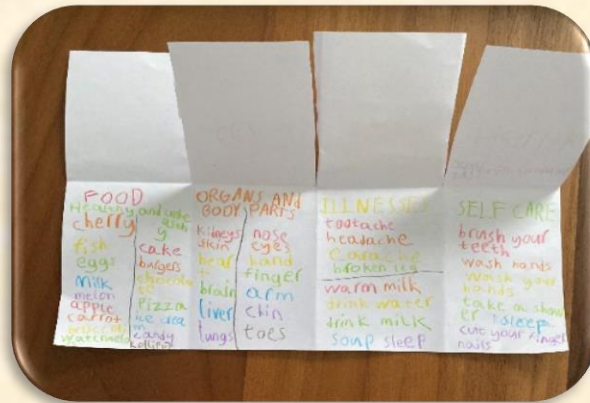 FOOD
Healthy and
cherry
fish
eggs
milk
melon
apple
carrot
cake
burgers
chocola
te
pizza
ice crea
m
candy
lollipop
ORGANS AND
BODY PARTS
kidneys
skin
hear
t
brain
liver
lungs
nose
eyes
hand
finger
arm
chin
toes
ILLNESSE
tootache
headache
earache
broken leg
warm milk
drink water
drink milk
soup sleep
SELF CARE
brush your
teeth
wash hands
wash your
hands
take a show
er sleep
cut your finger
nails